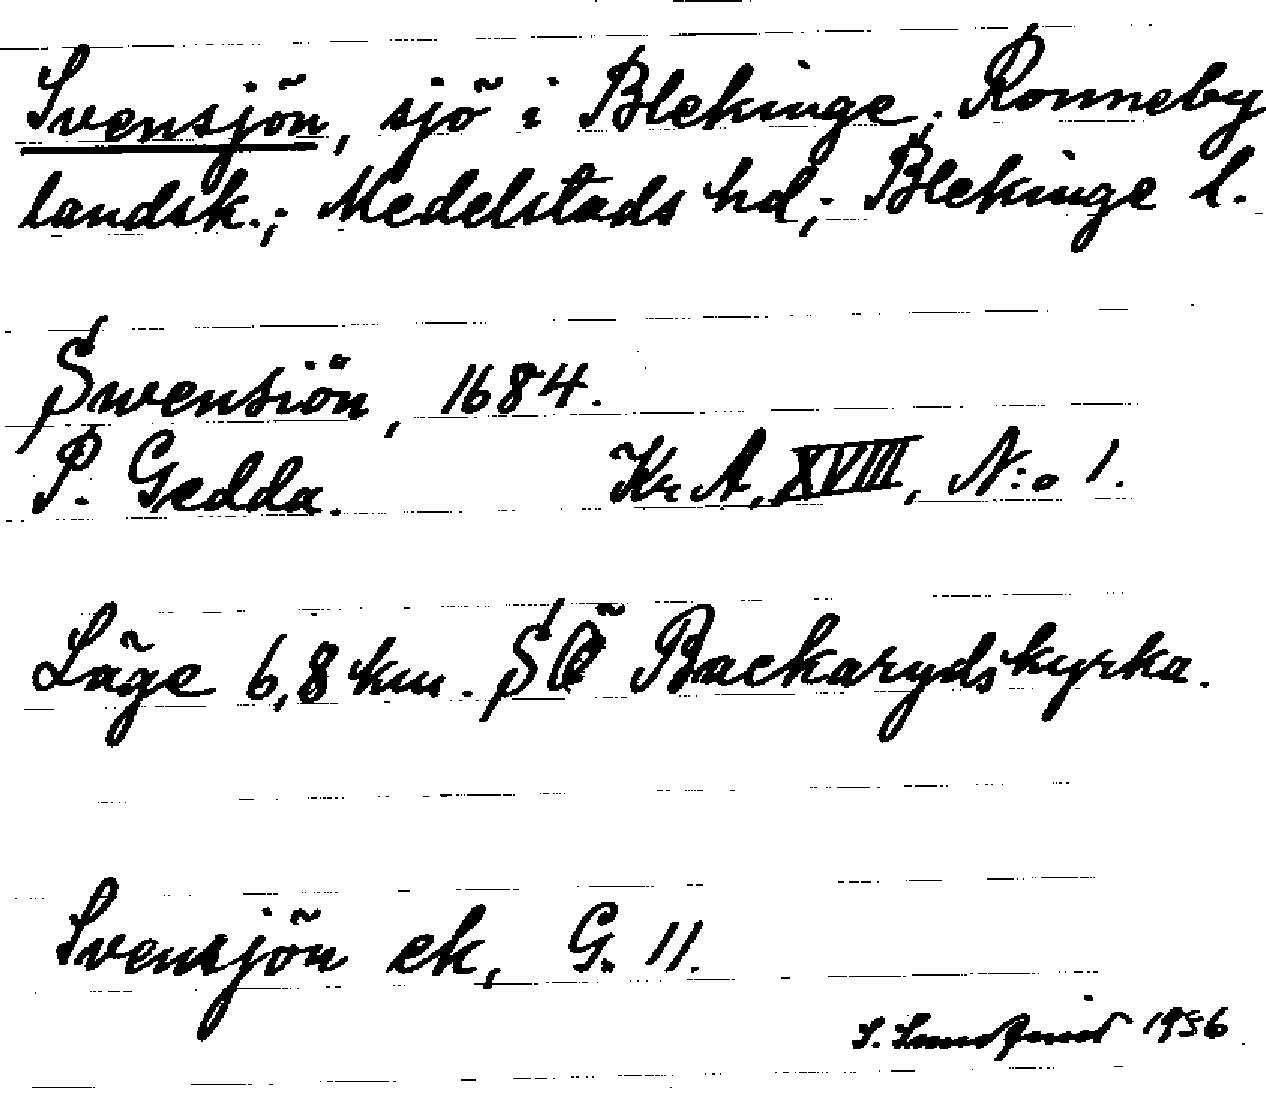 Svensjön, sjö i Blekinge. Ronneby
landsk.; Medelstads hd; Blekinge l.
Swensiön, 1684.
P. Gedda. Kr. A, XVIII, N:o 1.
Läge 6,8 km. SÖ Backaryds kyrka.
Svensjön ek, G. 11.
S. 1956